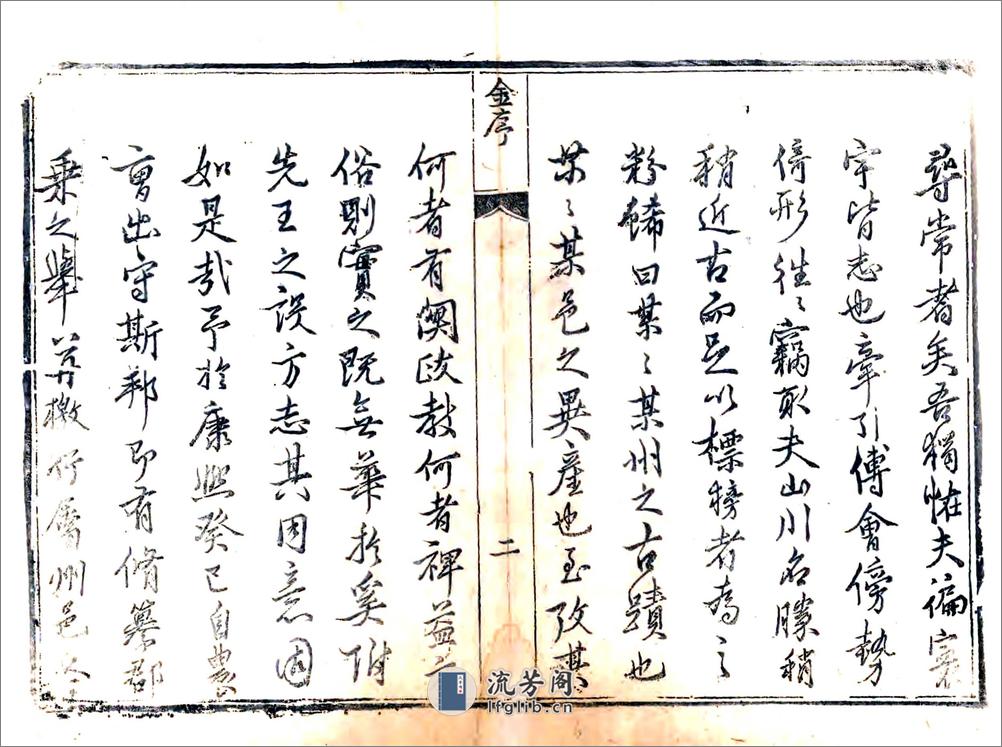 尋常者矣吾獨怪夫徧寰
宇皆志也牽引傅會傍勢
倚形往往竊取夫山川名勝稍
稍近古而足以標榜者為之
粉餙曰某某某州之古蹟也
某某某邑之異產也至攷其
金序
二
何者有關政教何者裨益
俗則實之既無華於奚附
先王之設方志其固意固
如是哉予於康熙癸巳自農
曹出守斯郡即有脩纂郡
乘之舉 檄行屬州邑
流芳阁
lfglib.cn